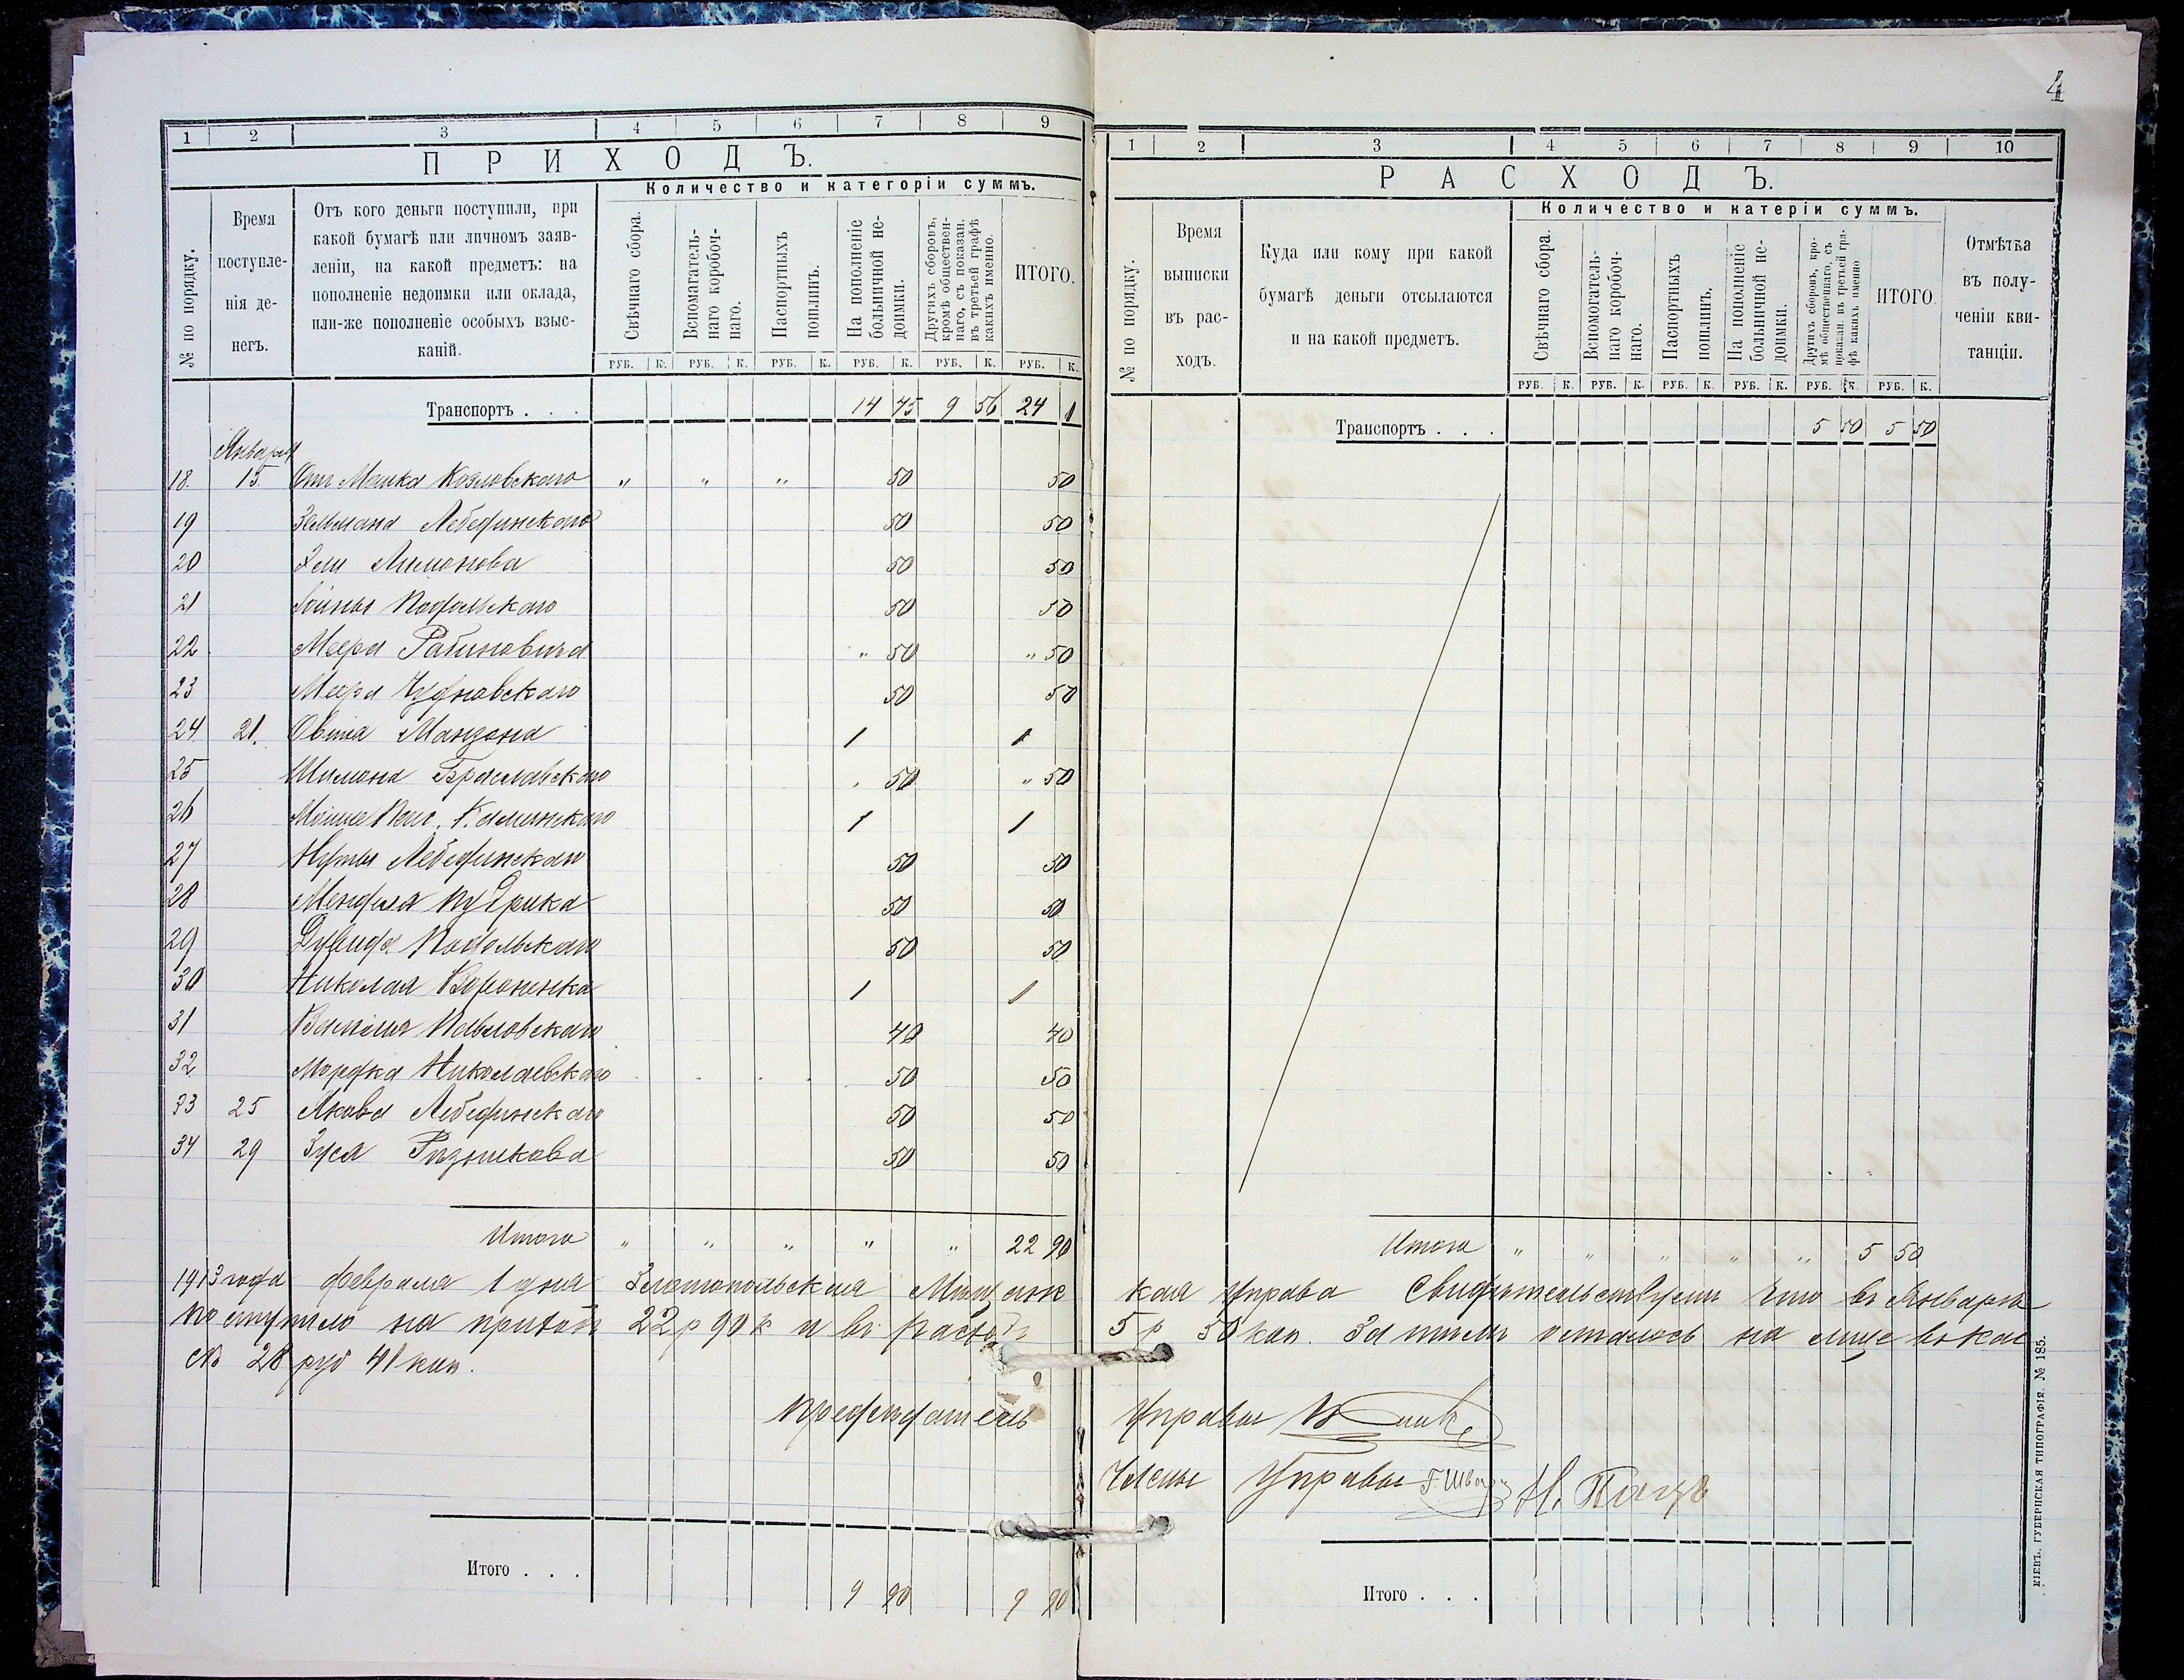 4
1 2 3 4 5 6 7 8 9
ПРИХОДЪ.
№ по порядку.
Время поступленія денегъ.
Отъ кого деньги поступили, при
какой бумагѣ или личномъ заяв-
леніи, на какой предметъ: на
пополненіе недоимки или оклада,
или-же пополненіе особыхъ взыс-
каній.
Количество и категоріи суммъ.
Свѣчнаго сбора.
Вспомогатель-
наго коробоч-
наго.
Паспортныхъ
пошлинъ.
На пополненіе
больничной не-
доимки.
Другихъ сборовъ,
кромѣ обществен-
наго, съ показан.
въ третьей графѣ
какихъ именно.
ИТОГО.
РУБ. К. РУБ. К. РУБ. К. РУБ. К. РУБ. К. РУБ. К.
Транспортъ . . . 14 75 9 56 24 1
Января
18. 15. От Мошка Козловскаго " " " 50 50
19 Зельмана Лебединскаго 50 50
20 Эли Лимонова 50 50
21 Подольскаго 50 50
22 Меера Рабиновича " 50 " 50
23 Меера Чудновскаго 50 50
24 21. Овшія Манзона 1 1
25 Шимона Браславскаго " 50 " 50
26 Каминскаго 1 1
27 Нуты Лебединскаго 50 50
28 Менделя Кудрика 50 50
29 Дувида Подольскаго 50 50
30 Николая 1 1
31 Василія Павловскаго 40 40
32 Мордка Николаевскаго 50 50
33 25 Якова Лебединскаго 50 50
34 29 Зуся Разникова 50 50
Итого " " " " " 22 90
1913 года февраля 1 дня Златопольская Мѣщанс
поступило на приход 22 р 90 к и в расход
28 руб 41 коп.
Предсѣдатель
Итого . . . 9 90 9 90
1 2 3 4 5 6 7 8 9 10
РАСХОДЪ.
№ по порядку.
Время
выписки
въ рас-
ходъ.
Куда или кому при какой
бумагѣ деньги отсылаются
и на какой предметъ.
Количество и катеріи суммъ.
Свѣчнаго сбора.
Вспомогатель-
наго коробоч-
наго.
Паспортныхъ
пошлинъ.
На пополненіе
больничной не-
доимки.
Другихъ сборовъ, кро-
мѣ общественнаго, съ
показан. въ третьей гра-
фѣ какихъ именно
ИТОГО.
Отмѣтка
въ полу-
ченіи кви-
танціи.
РУБ. К. РУБ. К. РУБ. К. РУБ. К. РУБ. К. РУБ. К.
Транспортъ . . . 5 50 5 50
Итого " " " " " 5 50
кая Управа Свидѣтельствует что в Январѣ
5 р 50 коп. За тѣм осталось на лице в кас
Управы
Члены Управы Г. Шварц Н.
Итого . . .
КІЕВЪ. ГУБЕРНСКАЯ ТИПОГРАФІЯ. № 185.